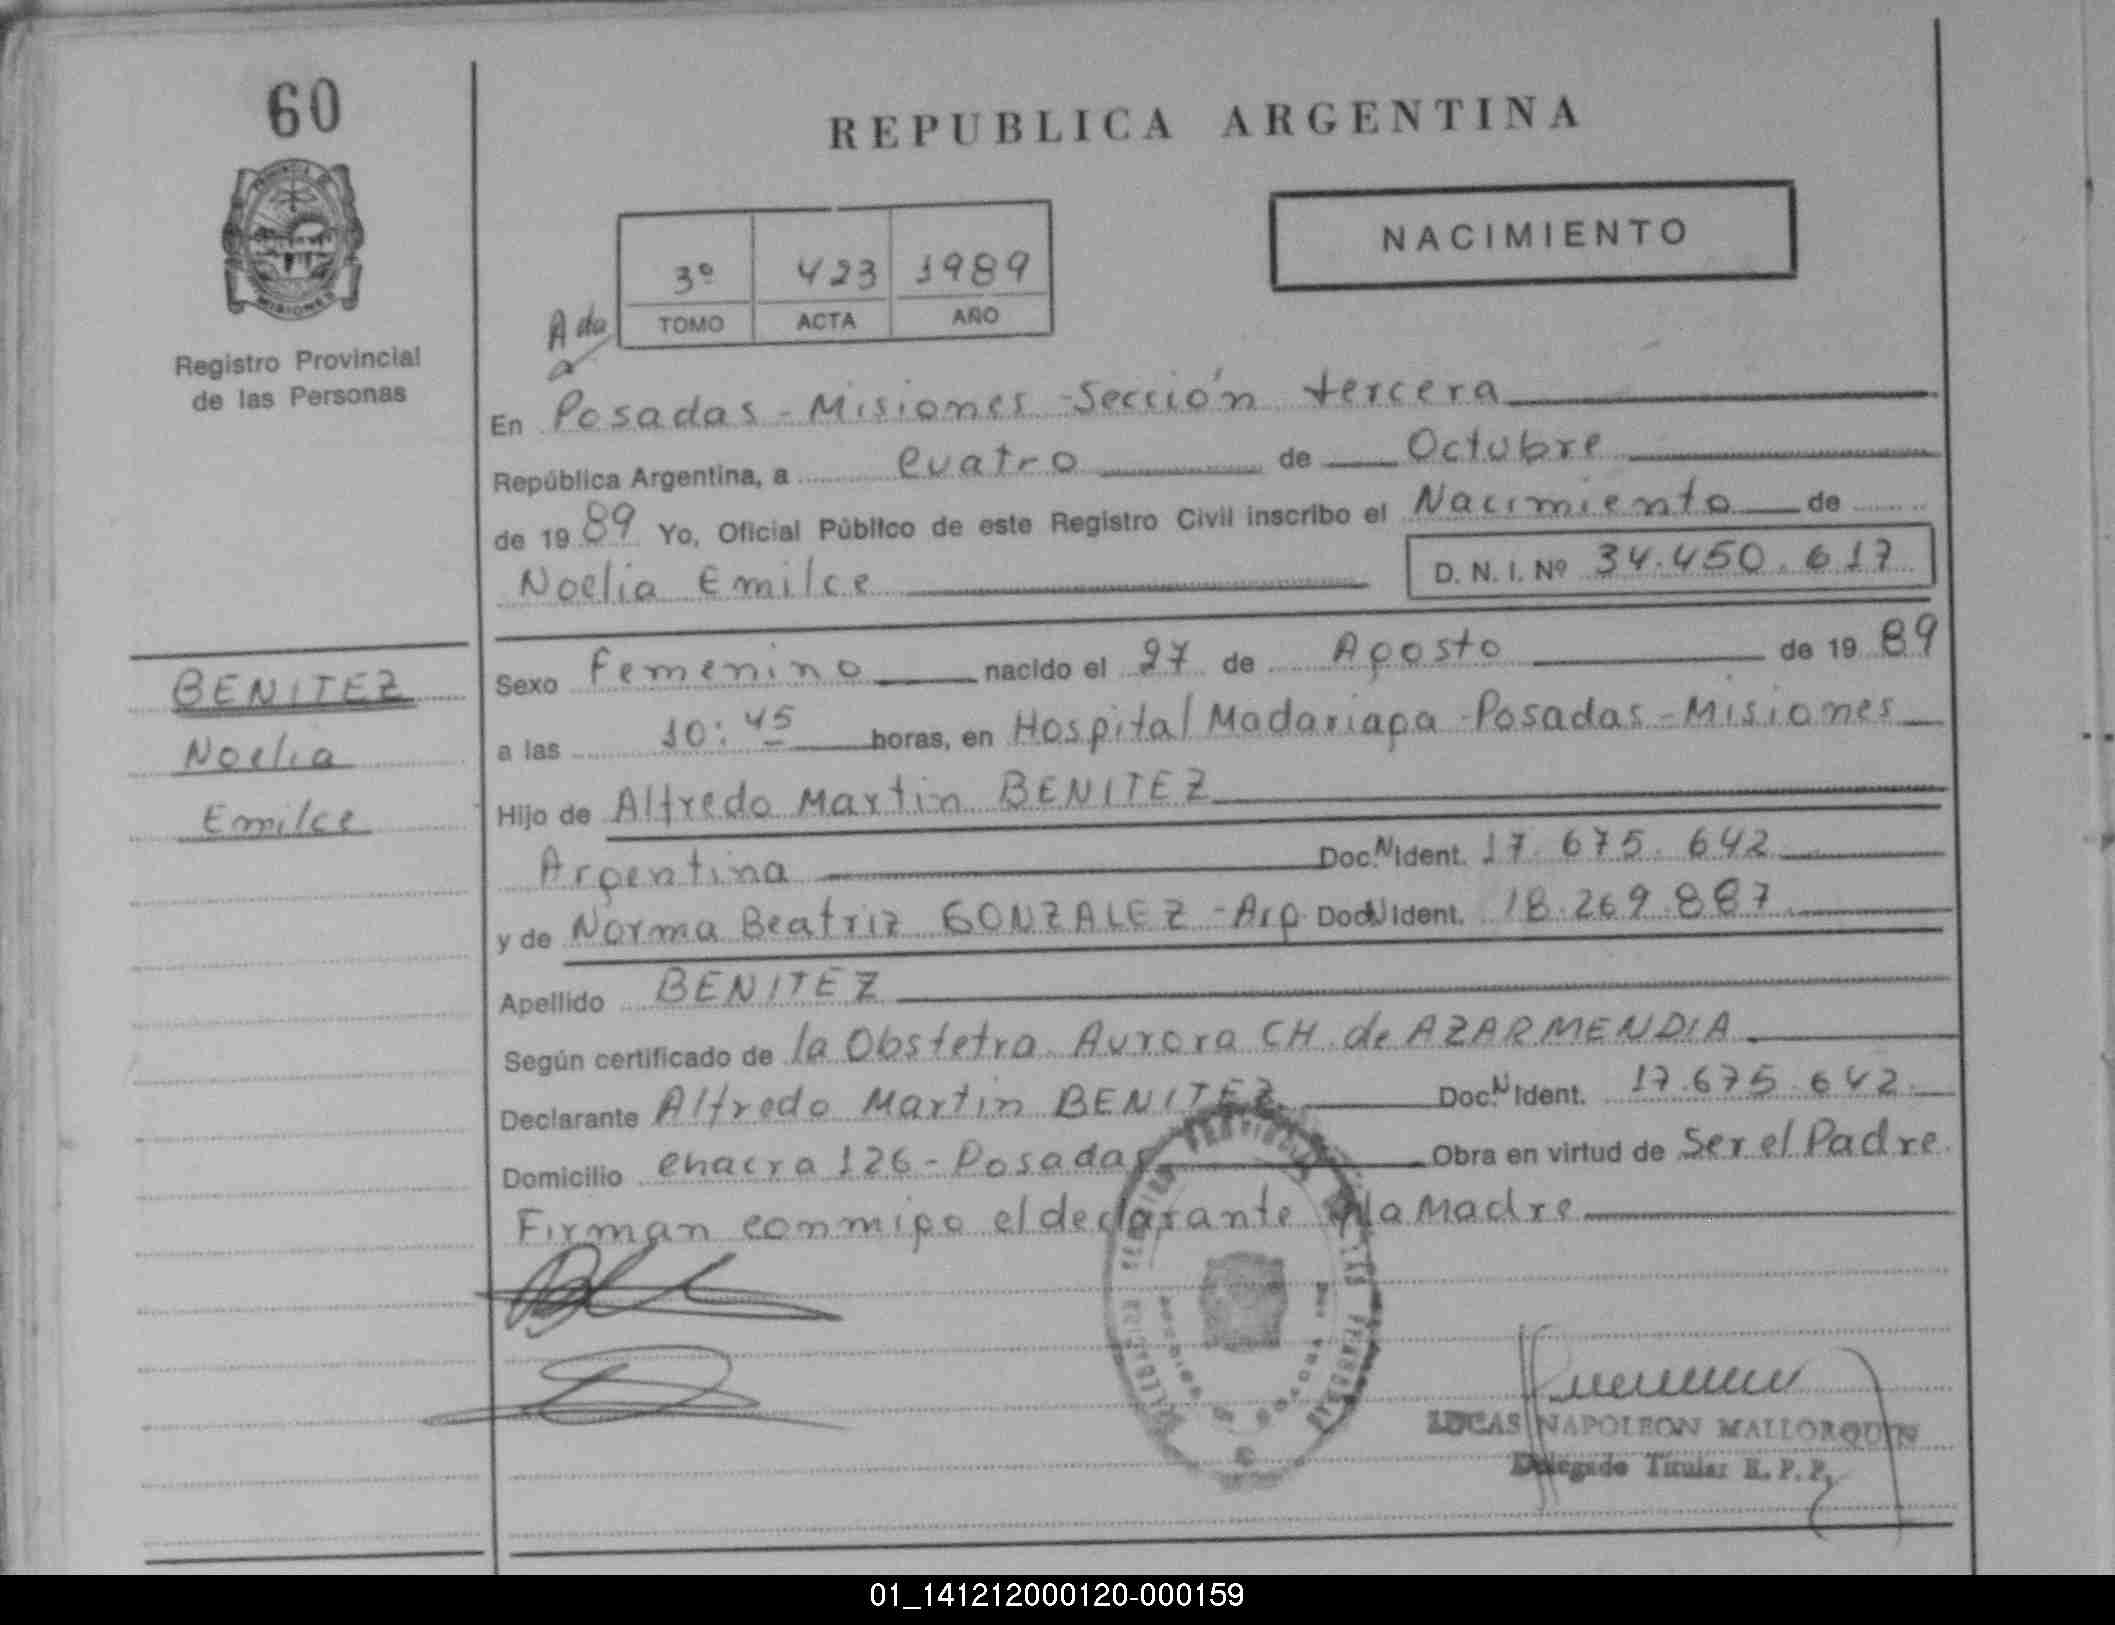 60
REPUBLICA ARGENTINA
NACIMIENTO
3º 423 1989
TOMO ACTA AÑO
Registro Provincial
de las Personas
En Posadas - Misiones - Sección tercera
República Argentina, a cuatro de Octubre
de 1989 Yo, Oficial Público de este Registro Civil inscribo el Nacimiento de
Noelia Emilce D. N. I. Nº 34.450.617
BENITEZ
Noelia
Emilce
Sexo Femenino nacido el 27 de Agosto de 1989
a las 10:45 horas, en Hospital Madariaga - Posadas - Misiones
Hijo de Alfredo Martin BENITEZ
Argentina Doc.N Ident. 17.675.642
y de Norma Beatriz GONZALEZ - Arg. Doc.N Ident. 18.269.887
Apellido BENITEZ
Según certificado de la Obstetra Aurora CH. de AZARMENDIA
Declarante Alfredo Martin BENITEZ Doc.N Ident. 17.675.642
Domicilio chacra 126 - Posadas Obra en virtud de Ser el Padre.
Firman conmigo el declarante y la Madre
LUCAS NAPOLEON MALLORQUIN
Delegado Titular R.P.P.
01_141212000120-000159